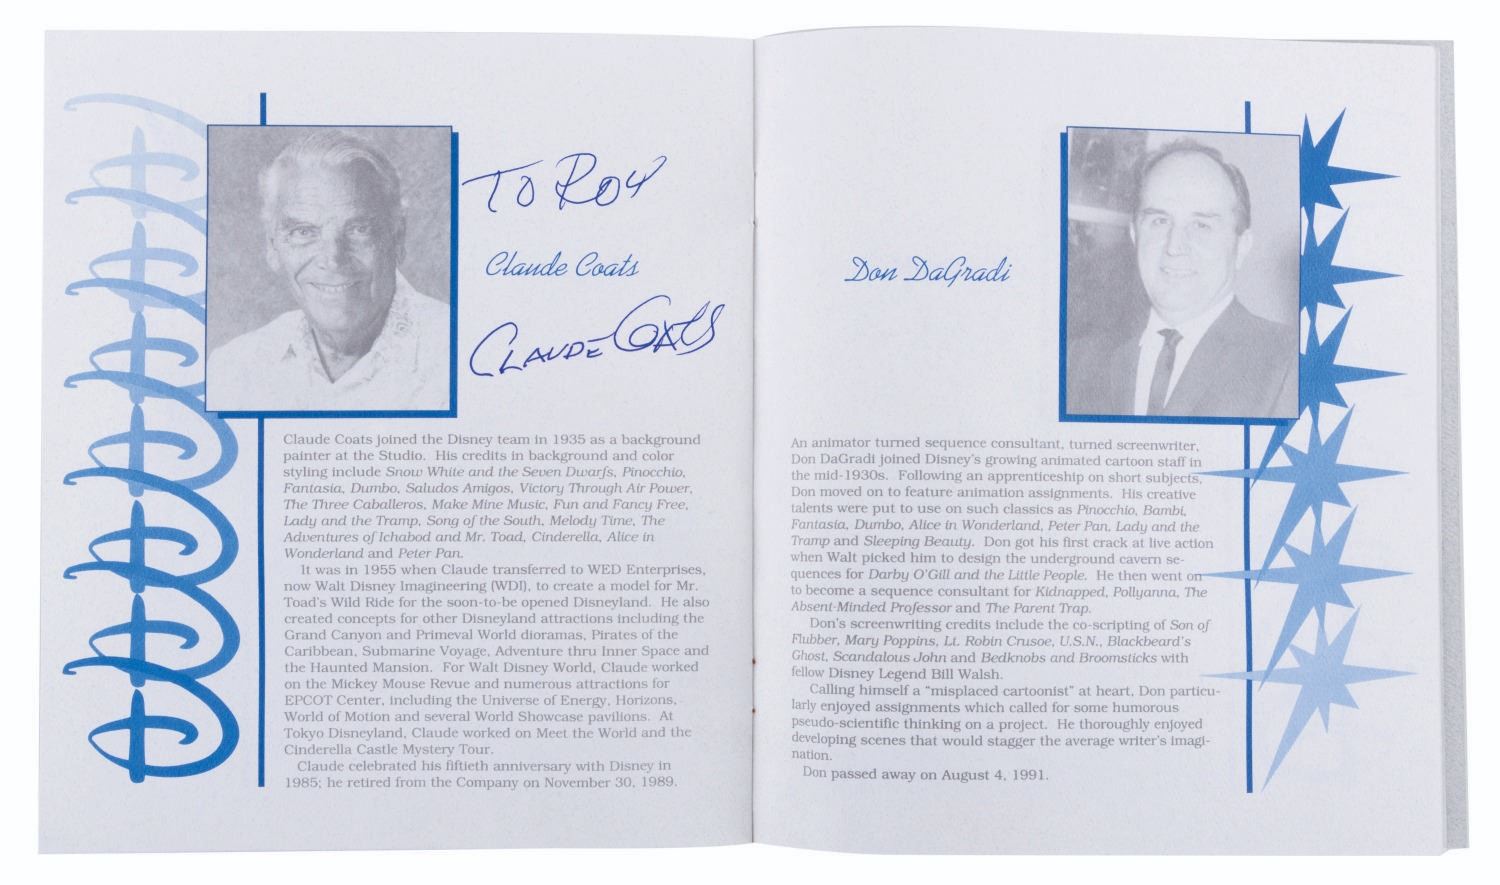 TO ROY
Claude Coats
CLAUDE COATS
Claude Coats joined the Disney team in 1935 as a background
painter at the Studio. His credits in background and color
styling include Snow White and the Seven Dwarfs, Pinocchio,
Fantasia, Dumbo, Saludos Amigos, Victory Through Air Power,
The Three Caballeros, Make Mine Music, Fun and Fancy Free,
Lady and the Tramp, Song of the South, Melody Time, The
Adventures of Ichabod and Mr. Toad, Cinderella, Alice in
Wonderland and Peter Pan.
It was in 1955 when Claude transferred to WED Enterprises,
now Walt Disney Imagineering (WDI), to create a model for Mr.
Toad's Wild Ride for the soon-to-be opened Disneyland. He also
created concepts for other Disneyland attractions including the
Grand Canyon and Primeval World dioramas, Pirates of the
Caribbean, Submarine Voyage, Adventure thru Inner Space and
the Haunted Mansion. For Walt Disney World, Claude worked
on the Mickey Mouse Revue and numerous attractions for
EPCOT Center, including the Universe of Energy, Horizons,
World of Motion and several World Showcase pavilions. At
Tokyo Disneyland, Claude worked on Meet the World and the
Cinderella Castle Mystery Tour.
Claude celebrated his fiftieth anniversary with Disney in
1985; he retired from the Company on November 30, 1989.
Don DaGradi
An animator turned sequence consultant, turned screenwriter,
Don DaGradi joined Disney's growing animated cartoon staff in
the mid-1930s. Following an apprenticeship on short subjects,
Don moved on to feature animation assignments. His creative
talents were put to use on such classics as Pinocchio, Bambi,
Fantasia, Dumbo, Alice in Wonderland, Peter Pan, Lady and the
Tramp and Sleeping Beauty. Don got his first crack at live action
when Walt picked him to design the underground cavern se-
quences for Darby O'Gill and the Little People. He then went on
to become a sequence consultant for Kidnapped, Pollyanna, The
Absent-Minded Professor and The Parent Trap.
Don's screenwriting credits include the co-scripting of Son of
Flubber, Mary Poppins, Lt. Robin Crusoe, U.S.N., Blackbeard's
Ghost, Scandalous John and Bedknobs and Broomsticks with
fellow Disney Legend Bill Walsh.
Calling himself a "misplaced cartoonist" at heart, Don particu-
larly enjoyed assignments which called for some humorous
pseudo-scientific thinking on a project. He thoroughly enjoyed
developing scenes that would stagger the average writer's imagi-
nation.
Don passed away on August 4, 1991.